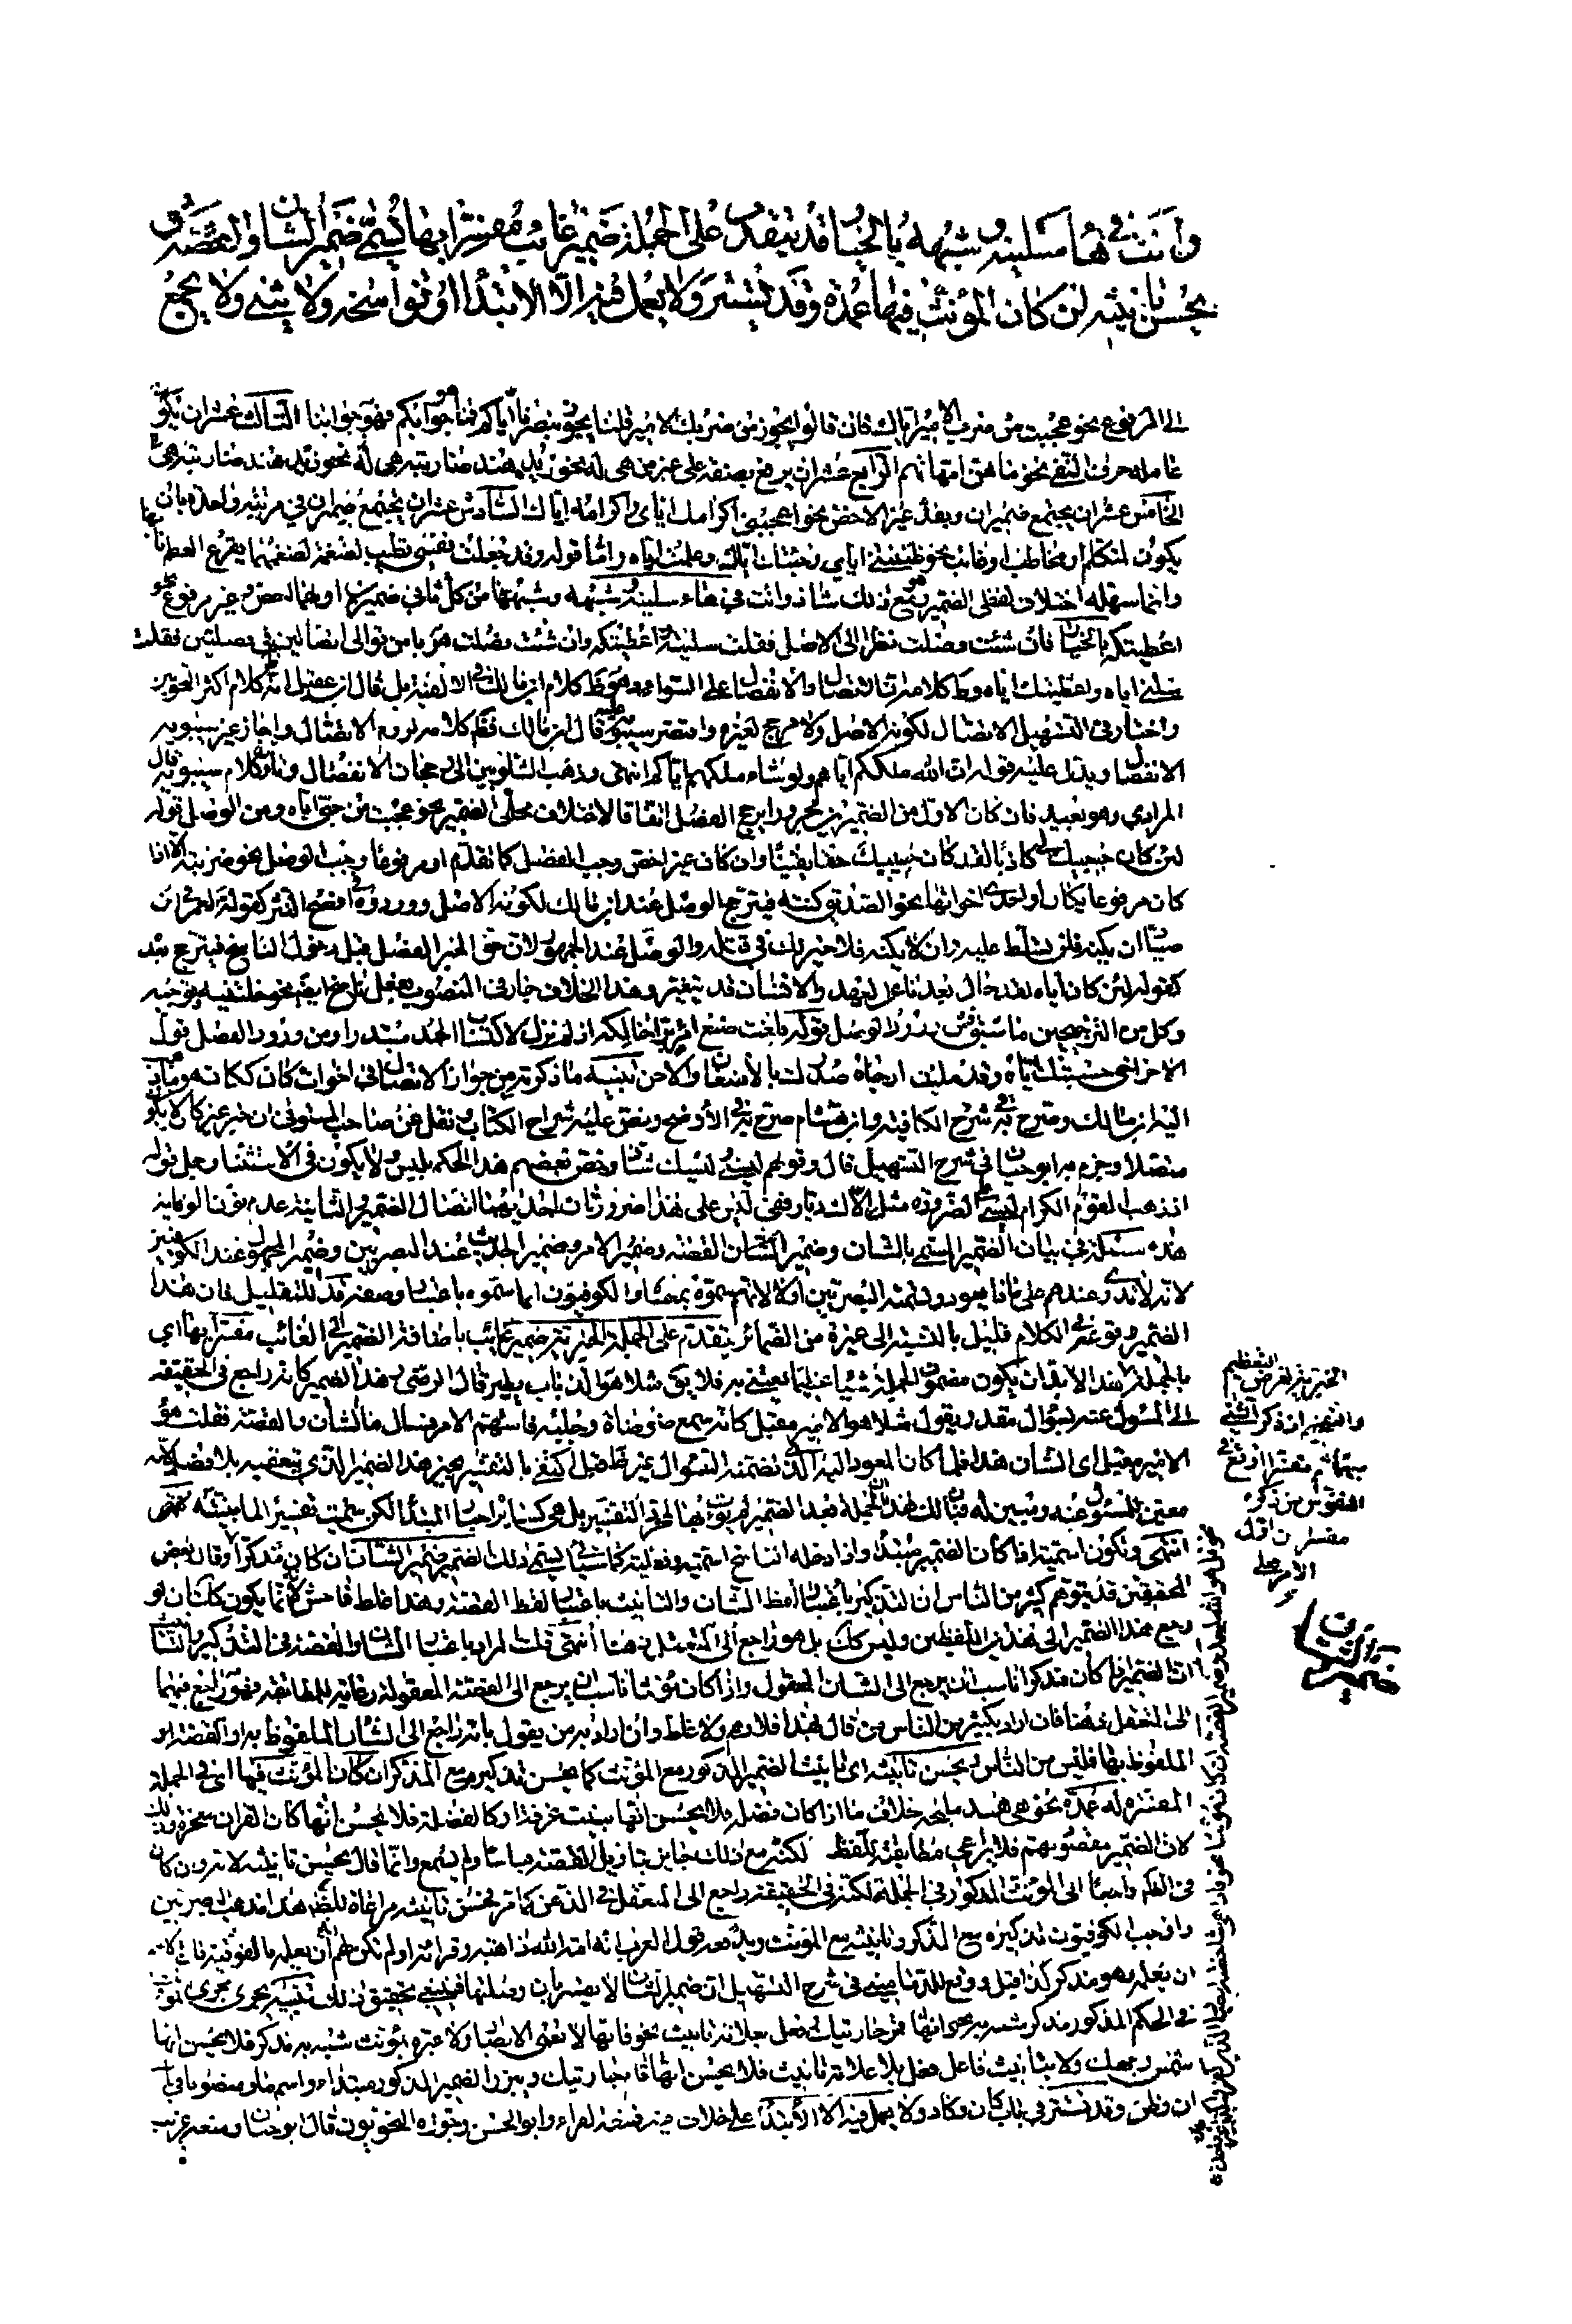 وأنت في هاء سلينه وشبهه بالخيار قد يتقدم على الجملة ضمير غائب مفسر بها يسمى ضمير الشان والقصة و
يحسن تانيثه ان كان المؤنث فيها عمدة وقد يستتر ولا يعمل فيه الا الابتدا او نواسخه ولا يثنى ولا يجمع
الى المرفوع نحو عجبت من ضرب الامير اياك فان قالوا يجوز من ضربك الامير قلنا يجوز بنصرنا اياكم فما جوابكم فهو جوابنا الثالث عشر ان يكون
عامله حرف النفي نحو ما هن امهاتهم الرابع عشر ان يرفع بصفة على غير من هي له نحو زيد هند ضاربته هي
الخامس عشر ان يجتمع ضميران ويقدم غير الاخص نحو اعجبني اكرامك اياي واكرامه اياك السادس عشر ان يجتمع ضميران في مرتبة واحدة بان
يكونا لمتكلم او مخاطب او غائب نحو ظننتني اياي وحسبتك اياك وعلمته اياه واما قوله وقد جعلت نفسي تطيب لضغمة لضغمهما يقرع العظم نابها
وانما سهله اختلاف لفظي الضميرين مع ذلك شاذ وانت في هاء سلنيه وشبهه وشبهها من كل ثاني ضميرين اولهما اخص وغير مرفوع نحو
اعطيتكه بالخيار فان شئت وصلت نظرا الى الاصل فقلت سلنيه اعطيتكه وان شئت فصلت هربا من توالي اتصالين في فصلتين فقلت
سلني اياه واعطيتك اياه وظ كلامه ان الاتصال والانفصال على السواء وهو ظ كلام ابن مالك في الالفية بل قال ابن عقيل انه كلام اكثر النحويين
واختار في التسهيل الاتصال لكونه الاصل ولا مرجح لغيره واقتصر سيبويه عليه قال ابن مالك فظ كلامه لزوم الاتصال واجاز غير سيبويه
الانفصال ويدل عليه قوله ان الله ملككم اياهم ولو شاء ملكهم اياكم انتهى وذهب الشلوبين الى رجحان الانفصال وتاول كلام سيبويه قال
المرادي وهو بعيد فان كان الاول من الضميرين مجرورا يرجح الفصل اتفاقا لاختلاف محلي الضمير نحو عجبت من حبي اياه ومن الوصل قوله
لئن كان حبيك لي كاذبا لقد كان حبيك حقا يقينا وان كان غير اخص وجب الفصل كما تقدم او مرفوعا وجب الوصل نحو ضربته الا اذا
كان مرفوعا بكان او احدى اخواتها نحو الصديق كنته فيترجح الوصل عند ابن مالك لكونه الاصل ووروده في افصح النثر كقوله لعمر في ابن
صياد ان يكنه فلن تسلط عليه وان لا يكنه فلا خير لك في قتله والفصل عند الجمهور لان حق الخبر الفصل قبل دخول الناسخ فيترجح بعد
كقوله لئن كان اياه لقد حال بعدنا عن العهد والانسان قد يتغير وهذا الخلاف جار في المنصوب بفعل ناسخ ايضا نحو خلتنيه
وكل من الترجيحين ما سبق فمن ورود الوصل قوله بلغت صنع امرئ بر اخالكه اذ لم تزل لاكتساب الحمد مبتدرا ومن ورود الفصل قوله
الاخر اخي حسبتك اياه وقد ملئت ارجاء صدرك بالاضغان والاحن تنبيه ما ذكرته من جواز الاتصال في اخوات كان ككان هو ما
اليه ابن مالك وصرح به في شرح الكافية وابن هشام صرح به في الاوضح ونص عليه شراح الكتاب ونقل عن صاحب المستوفى ان خبر غير كان لا يكون
متصلا وجزم به ابو حيان في شرح التسهيل قال وقولهم ليسني وليسك شاذ وخص بعضهم هذا الحكم بليس ولا يكون في الاستثنا وجعل قوله
اذ ذهب القوم الكرام ليسي ضرورة مثل الاك ديار ففي ليسي على هذا ضرورتان احديهما اتصال الضمير والثانية عدم نون الوقاية
هذه مسئلة في بيان الضمير المسمى بالشان وضمير الشان القصة وضمير الامر وضمير الحديث عند البصريين وضمير المجهول عند الكوفيين
لانه لا يدرى عندهم على ماذا يعود وتسمية البصريين اولى لانهم سموه بمعناه والكوفيون انما سموه باعتبار وصفه قد للتقليل فان هذا
الضمير وقوعه في الكلام قليل بالنسبة الى غيره من الضمائر يتقدم على الجملة الخبرية ضمير غائب باضافة الضمير الى الغائب مفسرا بها اي
بالجملة بعده لابد ان يكون مضمون الجملة شيئا عظيما يعتنى به فلا يق مثلا هو الذباب يطير قال الرضي هذا الضمير كانه راجع في الحقيقة
الى المسئول عنه بسؤال مقدر يقول مثلا هو الامير مقبل كانه سمع ضوضاة وجلبة فاستبهم الامر فسال ما الشان والقصة فقلت هو
الامير مقبل اي الشان هذا فلما كان المعود اليه الذي تضمنه السؤال غير ظ قبل اكتفى بالتفسير بخبر هذا الضمير الذي يتعقبه بلا فصل لانه
معين للمسئول عنه ومبين له فبان لك بهذا ان الجملة بعد الضمير لم يؤت بها لمجرد التفسير بل هي كسائر اخبار المبتدا لكن سميت تفسيرا لما بينته
انتهى وتكون اسمية اذا كان الضمير مبتدا واذا دخله الناسخ اسمية وفعلية كما سياتي يسمى ذلك الضمير ضمير الشان ان كان مذكرا وقال بعض
المحققين قد يتوهم كثير من الناس ان التذكير باعتبار لفظ الشان والتانيث باعتبار لفظ القصة وهذا غلط فاحش فانما يكون كك ان لو
رجع هذا الضمير الى هذين اللفظين وليس كك بل هو راجع الى المتعقل ذهنا انتهى قلت المراد باعتبار الشان والقصة في التذكير والتانيث
ان الضمير اذا كان مذكرا ناسب ان يرجع الى الشان المعقول واذا كان مؤنثا ناسب ان يرجع الى القصة المعقولة رعاية للمطابقة فهو راجع فيهما
الى المتعقل ذهنا فان اراد بكثير من الناس من قال بهذا فلا وهم ولا غلط وان اراد به من يقول بانه راجع الى الشان الملفوظ به او القصة
الملفوظ بها فليس من الناس ويحسن تانيثه اي تانيث الضمير المذكور مع المؤنث كما يحسن تذكيره مع المذكر ان كان المؤنث فيها اي في الجملة
المفسرة له عمدة نحو هي هند مليحة خلاف ما اذا كان فضلة فلا يحسن انها بنيت غرفة او كالفضلة فلا يحسن انها كان القران معجزة وذلك
لان الضمير مقصود بهم فلا يراعى مطابقته للفظ لكنه مع ذلك جايز بتاويل القصة قياسا ولم يسمع وانما قال يحسن تانيثه لانه وان كان
في الظاهر راجعا الى المؤنث المذكور في الجملة لكنه في الحقيقة راجع الى المتعقل في الذهن كما مر فحسن تانيثه مراعاة للفظ هذا مذهب البصريين
واوجب الكوفيون تذكيره مع المذكر وتانيثه مع المؤنث ويرده قول العرب انه امة الله ذاهبة وقرائة اولم تكن لهم آية ان يعلمه بالفوقية فان الاسم
ان يعلمه وهو مذكر كذا قيل ووقع للدماميني في شرح التسهيل ان ضمير الشان لا يفسر بان وصلتها فينبغي تحقيق ذلك تنبيه يجرى مجرى المؤنث
في الحكم المذكور مذكر شبه به مؤنث نحو انها قمر جاريتك او فعل بعلامة تانيث نحو فانها لا تعمى الابصار ولا عبرة بمؤنث شبه به مذكر فلا يحسن انها
شمس وجهك ولا بتانيث فاعل فعل بلا علامة تانيث فلا يحسن انها قام جاريتك ويبرز الضمير المذكور مبتداء واسم ما ومنصوبا في باب
ان وظن وقد يستتر في باب كان وكاد ولا يعمل فيه الا الابتدا على خلاف فيه فمنعه الفراء وابو الحسن وجوزه النحويون قال ابو حيان ومنعه غريب
المخبر به لغرض التعظيم
والتفخيم اذ ذكر الشئ
مبهما ثم مفسرا اوقع في
النفوس من ذكره
مفسرا من اول
الامر
ضمير الشان